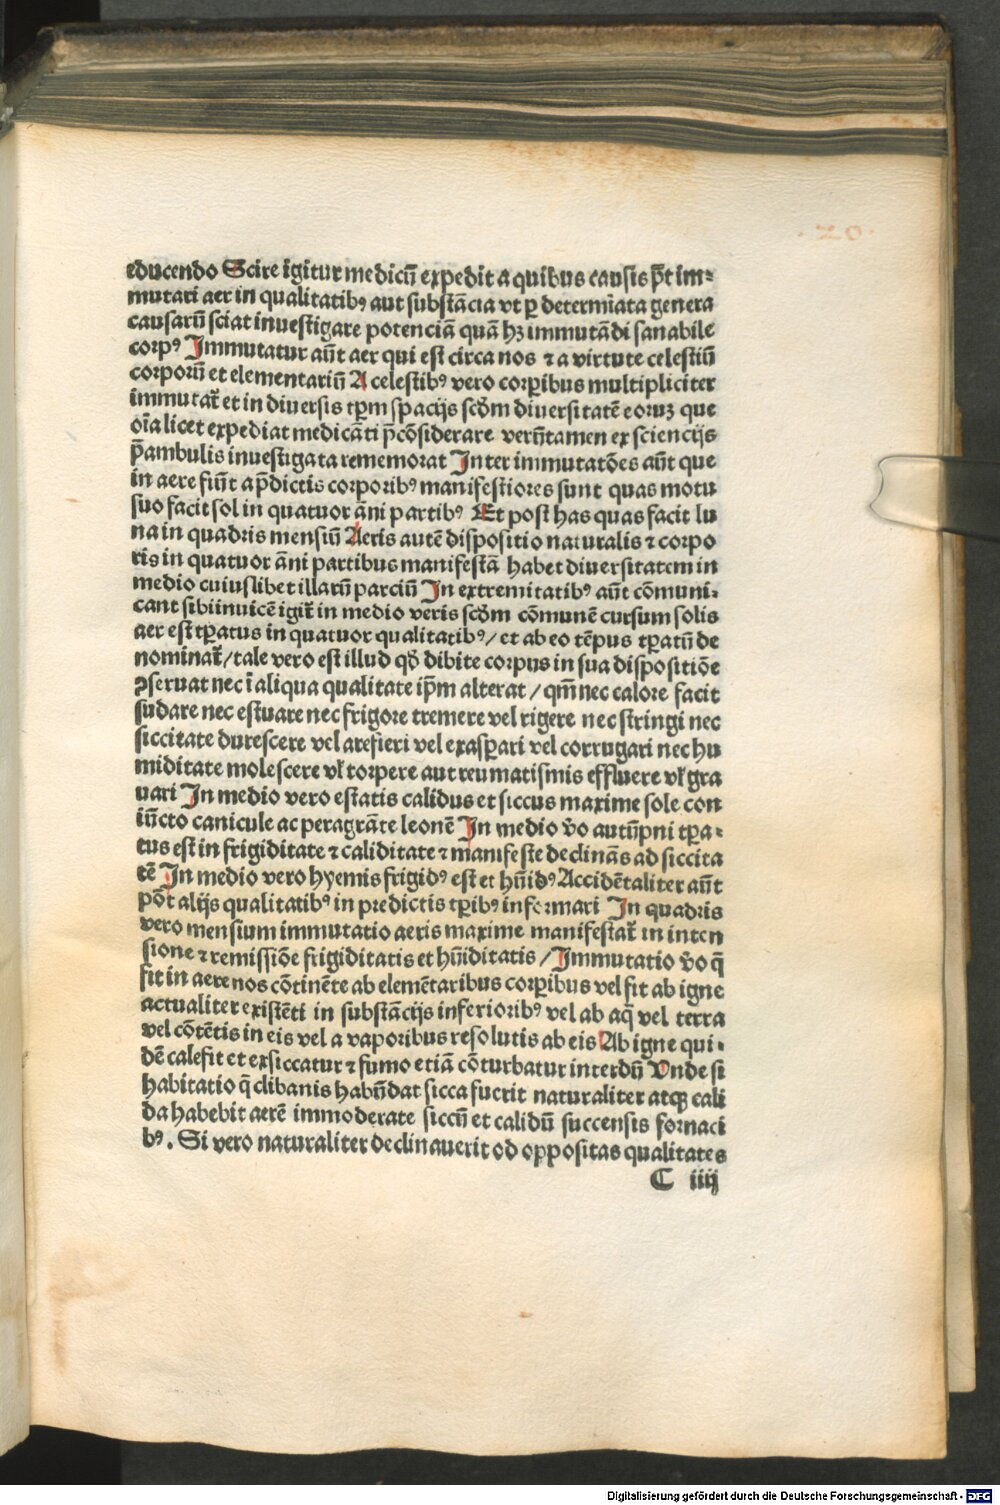 .20.
educendo Scire igit̃ur medicū expedit a quibus causis p̄t im⸗
mutari aer in qualitatibꝰ aut substācia vt ꝑ determīata genera
causarū sciat inuestigare potenciā quā hꝫ immutādi sanabile
corpꝰ Immutatur aūt aer qui est circa nos ⁊ a virtute celestiū
corporū et elementariū A celestibꝰ vero corꝑibus multipliciter
immutat̃ et in diuersis tꝑm spacijs scd̄m diuersitatē eoruꝫ que
oīa licet expediat medicāti p̄cōsiderare verūtamen ex sciencijs
p̄ambulis inuestigata rememorat Inter immutatōes aūt que
in aere fiūt a p̄dictis corporibꝰ manifestiores sunt quas motu
suo facit sol in quatuor āni partibꝰ Et post has quas facit lu
na in quadris mensiū Aeris autē dispositio naturalis ⁊ corpo
ris in quatuor āni partibus manifestā habet diuersitatem in
medio cuiuslibet illarū parciū In extremitatibꝰ aūt cōmuni⸗
cant sibiinuicē igit̃ in medio veris scd̄m cōmunē cursum solis
aer est tꝑatus in quatuor qualitatibꝰ/ et ab eo tēpus tꝑatū de
nominat̃/ tale vero est illud qd̄ dibite corpus in sua dispositiōe
ꝯseruat nec ī aliqua qualitate ip̄m alterat / qm̄ nec calore facit
sudare nec estuare nec frigore tremere vel rigere nec stringi nec
siccitate durescere vel arefieri vel exasꝑari vel corrugari nec hu
miditate molescere vl̃ torpere aut reumatismis effluere vl̃ gra
uari In medio vero estatis calidus et siccus maxime sole con
iūcto canicule ac peragrāte leonē In medio v̄o autūpni tꝑa⸗
tus est in frigiditate ⁊ caliditate ⁊ manifeste declinās ad siccita
tē In medio vero hyemis frigidꝰ est et hūidꝰ Accidētaliter aūt
pōt alijs qualitatibꝰ in predictis tꝑibꝰ informari In quadris
vero mensium immutatio aeris maxime manifestat̃ in inten
sione ⁊ remissiōe frigiditatis et hūiditatis / Immutatio v̄o q̄
fit in aere nos cōtinēte ab elemētaribus corꝑibus vel fit ab igne
actualiter existēti in substācijs inferioribꝰ vel ab aq̄ vel terra
vel cōtētis in eis vel a vaporibus resolutis ab eis Ab igne qui⸗
dē calefit et exsiccatur ⁊ fumo etiā cōturbatur interdū Vnde si
habitatio q̄ clibanis habūdat sicca fuerit naturaliter atqꝫ cali
da habebit aerē immoderate siccū et calidū succensis fornaci
bꝰ. Si vero naturaliter declinauerit od oppositas qualitates
C iiij
Digitalisierung gefördert durch die Deutsche Forschungsgemeinschaft - DFG